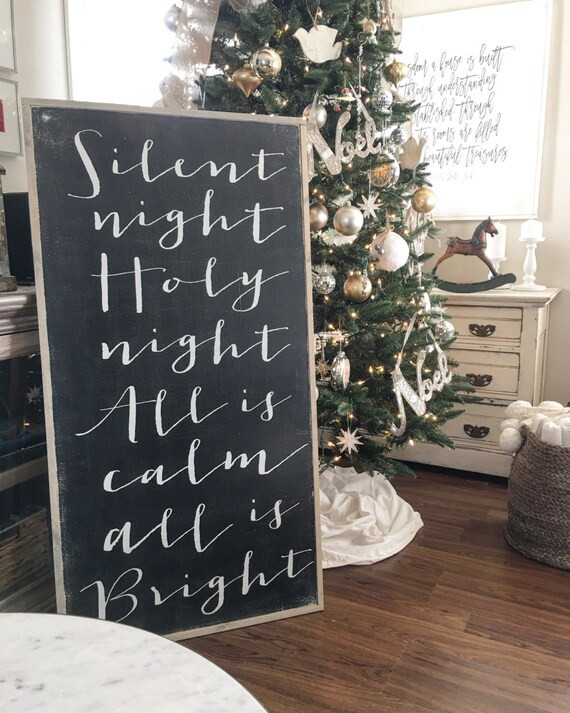 Silent
night
Holy
night
All is
calm
all is
Bright
Noel
Noel
a house is built
through understanding
through
rooms are filled
beautiful treasures